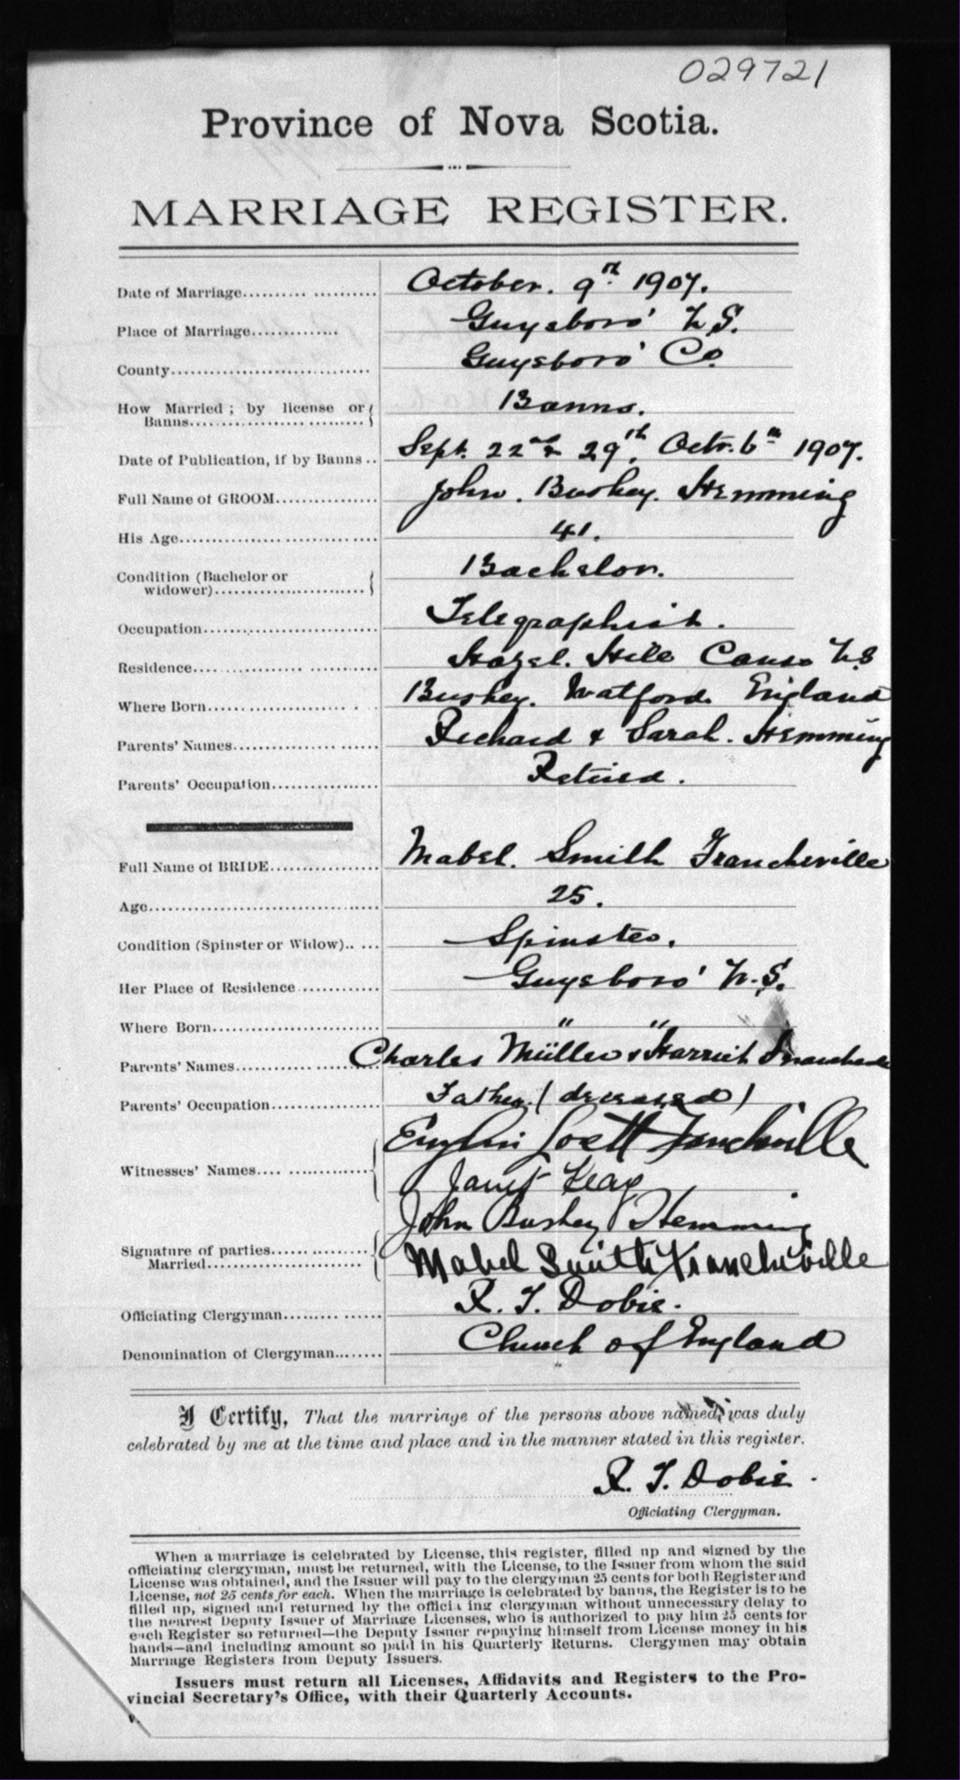 029721
Province of Nova Scotia.
MARRIAGE REGISTER.
Date of Marriage.......... October. 9th 1907.
Place of Marriage.............. Guysboro' N.S.
County.............................. Guysboro' Co
How Married ; by license or Banns.......................... Banns.
Date of Publication, if by Banns .. Sept. 22nd & 29th, Octr. 6th 1907.
Full Name of GROOM............... John. Bushey. Hemming
His Age.............................. 41.
Condition (Bachelor or widower)......................... Bachelor.
Occupation........................... Telegraphist.
Residence............................ Hazel. Hill Canso N.S
Where Born...................... Bushey. Watford. England
Parents' Names...................... Richard & Sarah. Hemming
Parents' Occupation................ Retired.
Full Name of BRIDE................ Mabel. Smith Francheville
Age.................................. 25.
Condition (Spinster or Widow).. .... Spinster.
Her Place of Residence ............ Guysboro' N.S.
Where Born......................... " "
Parents' Names..................... Charles Müller & Harriet Francheville
Parents' Occupation................ Father (deceased)
Witnesses' Names.... ............ Scott Francheville
Janet
Signature of parties Married......................... John Bushey Hemming
Mabel Smith Francheville
Officiating Clergyman.............. R. T. Dobie.
Denomination of Clergyman........ Church of England
I Certify, That the marriage of the persons above named, was duly
celebrated by me at the time and place and in the manner stated in this register.
R. T. Dobie.
Officiating Clergyman.
When a marriage is celebrated by License, this register, filled up and signed by the
officiating clergyman, must be returned, with the License, to the Issuer from whom the said
License was obtained, and the Issuer will pay to the clergyman 25 cents for both Register and
License, not 25 cents for each. When the marriage is celebrated by banns, the Register is to be
filled up, signed and returned by the officiating clergyman without unnecessary delay to
the nearest Deputy Issuer of Marriage Licenses, who is authorized to pay him 25 cents for
each Register so returned—the Deputy Issuer repaying himself from License money in his
hands—and including amount so paid in his Quarterly Returns. Clergymen may obtain
Marriage Registers from Deputy Issuers.
Issuers must return all Licenses, Affidavits and Registers to the Pro-
vincial Secretary's Office, with their Quarterly Accounts.